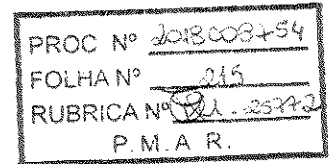 PROC Nº 2018008754
FOLHA Nº 215
RUBRICA Nº 25772
P. M. A R.